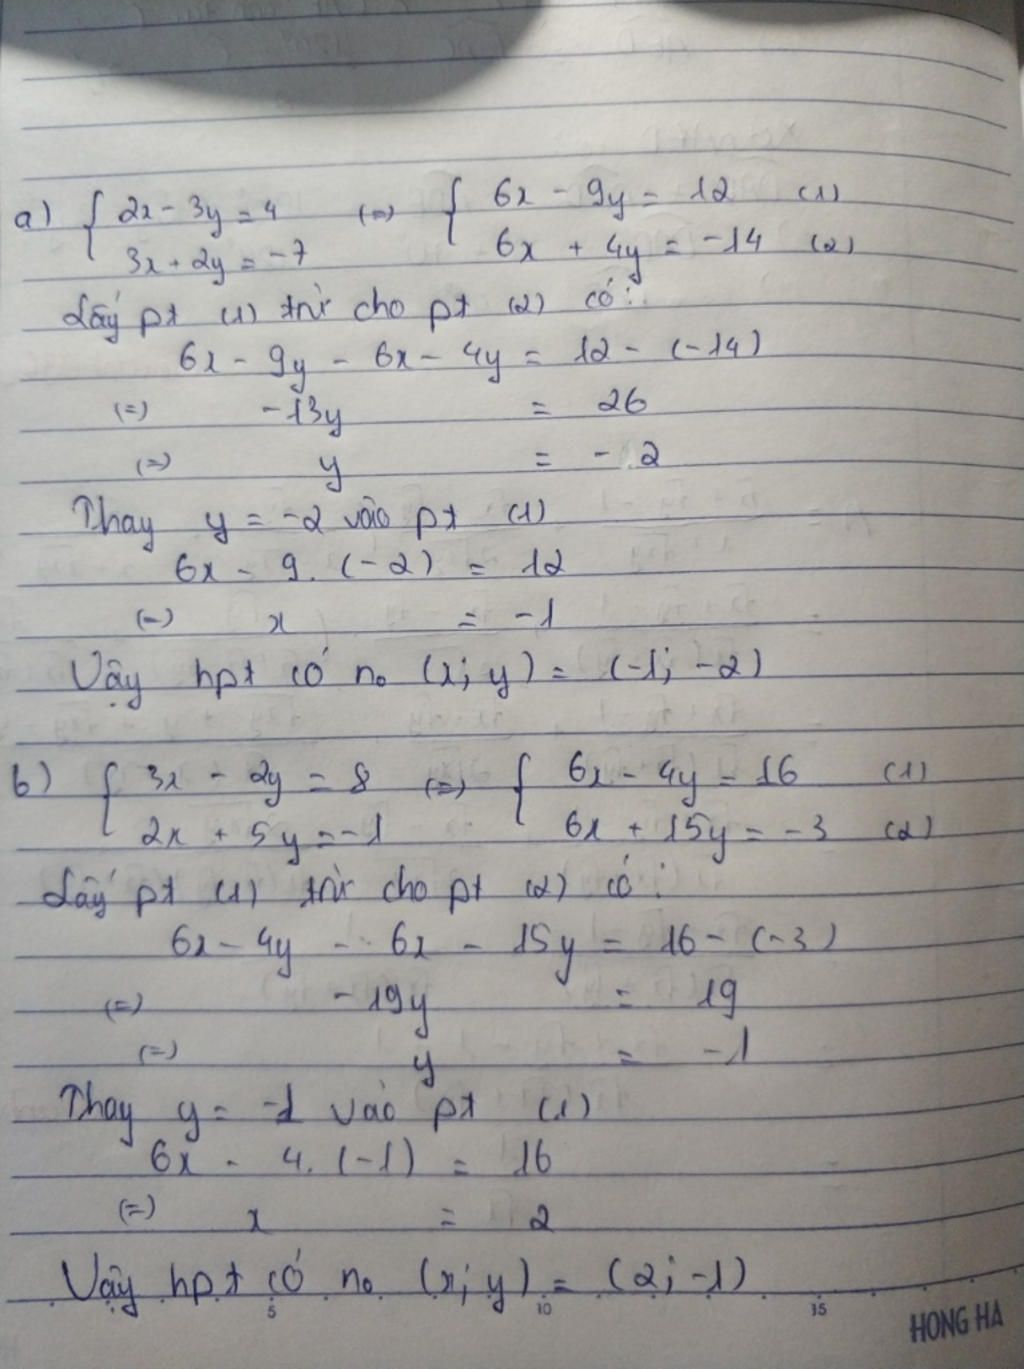 a) { 2x - 3y = 4 (=) { 6x - 9y = 12 (1)
3x + 2y = -7 6x + 4y = -14 (2)
Lấy pt (1) trừ cho pt (2) có:
6x - 9y - 6x - 4y = 12 - (-14)
(=) -13y = 26
(=) y = -2
Thay y = -2 vào pt (1)
6x - 9. (-2) = 12
(=) x = -1
Vậy hpt có no (x; y) = (-1; -2)
b) { 3x - 2y = 8 (=) { 6x - 4y = 16 (1)
2x + 5y = -1 6x + 15y = -3 (2)
Lấy pt (1) trừ cho pt (2) có:
6x - 4y - 6x - 15y = 16 - (-3)
(=) -19y = 19
(=) y = -1
Thay y = -1 vào pt (1)
6x - 4. (-1) = 16
(=) x = 2
Vậy hpt có no (x; y) = (2; -1)
5 10 15
HONG HA